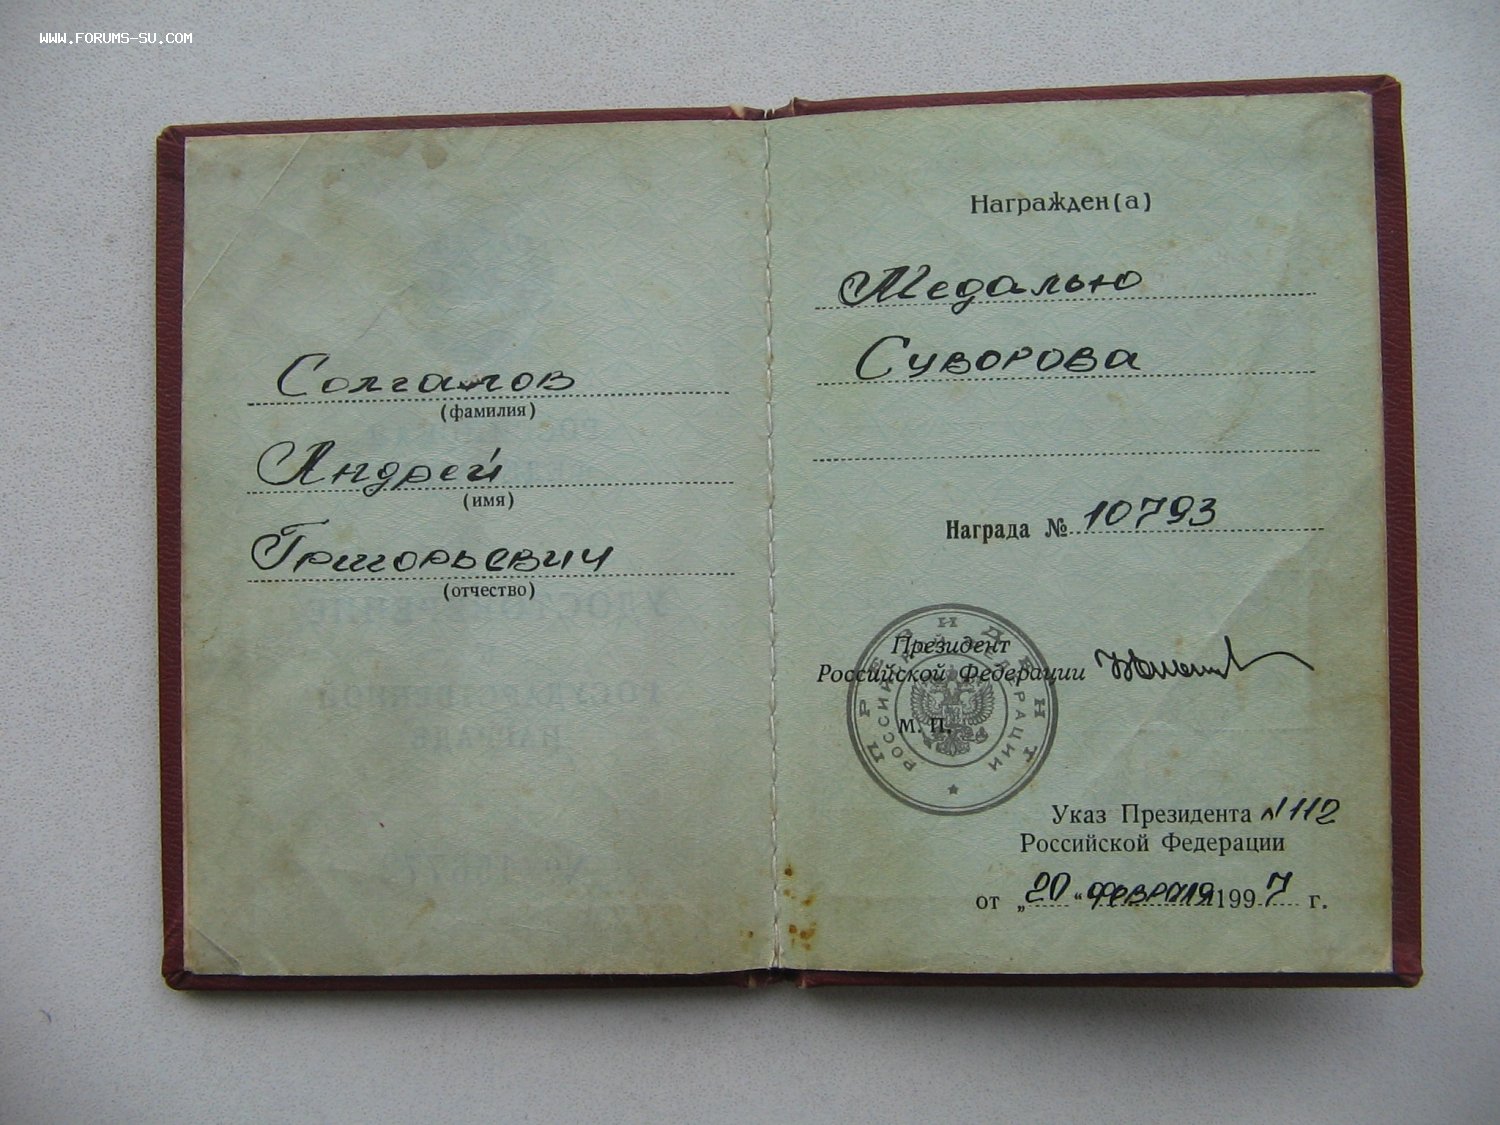 WWW.FORUMS-SU.COM
(фамилия)
Андрей
(имя)
Григорьевич
(отчество)
Награжден(а)
Медалью
Суворова
Награда № 10793
Президент
Российской Федерации
М. П.
ПРЕЗИДЕНТ
РОССИЙСКОЙ ФЕДЕРАЦИИ
Указ Президента №112
Российской Федерации
от „20“ февраля 1997 г.